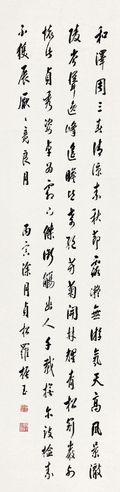 和澤周三春清涼素秋節露凝無游氛天高風景澈
陵岑聳逸峰遙瞻皆奇絕芳菊開林耀青松冠巖列
懷此貞秀姿卓為霜下傑銜觴念幽人千載撫尔訣檢素
不獲展厭〻竟良月 丙寅涂月貞松羅振玉